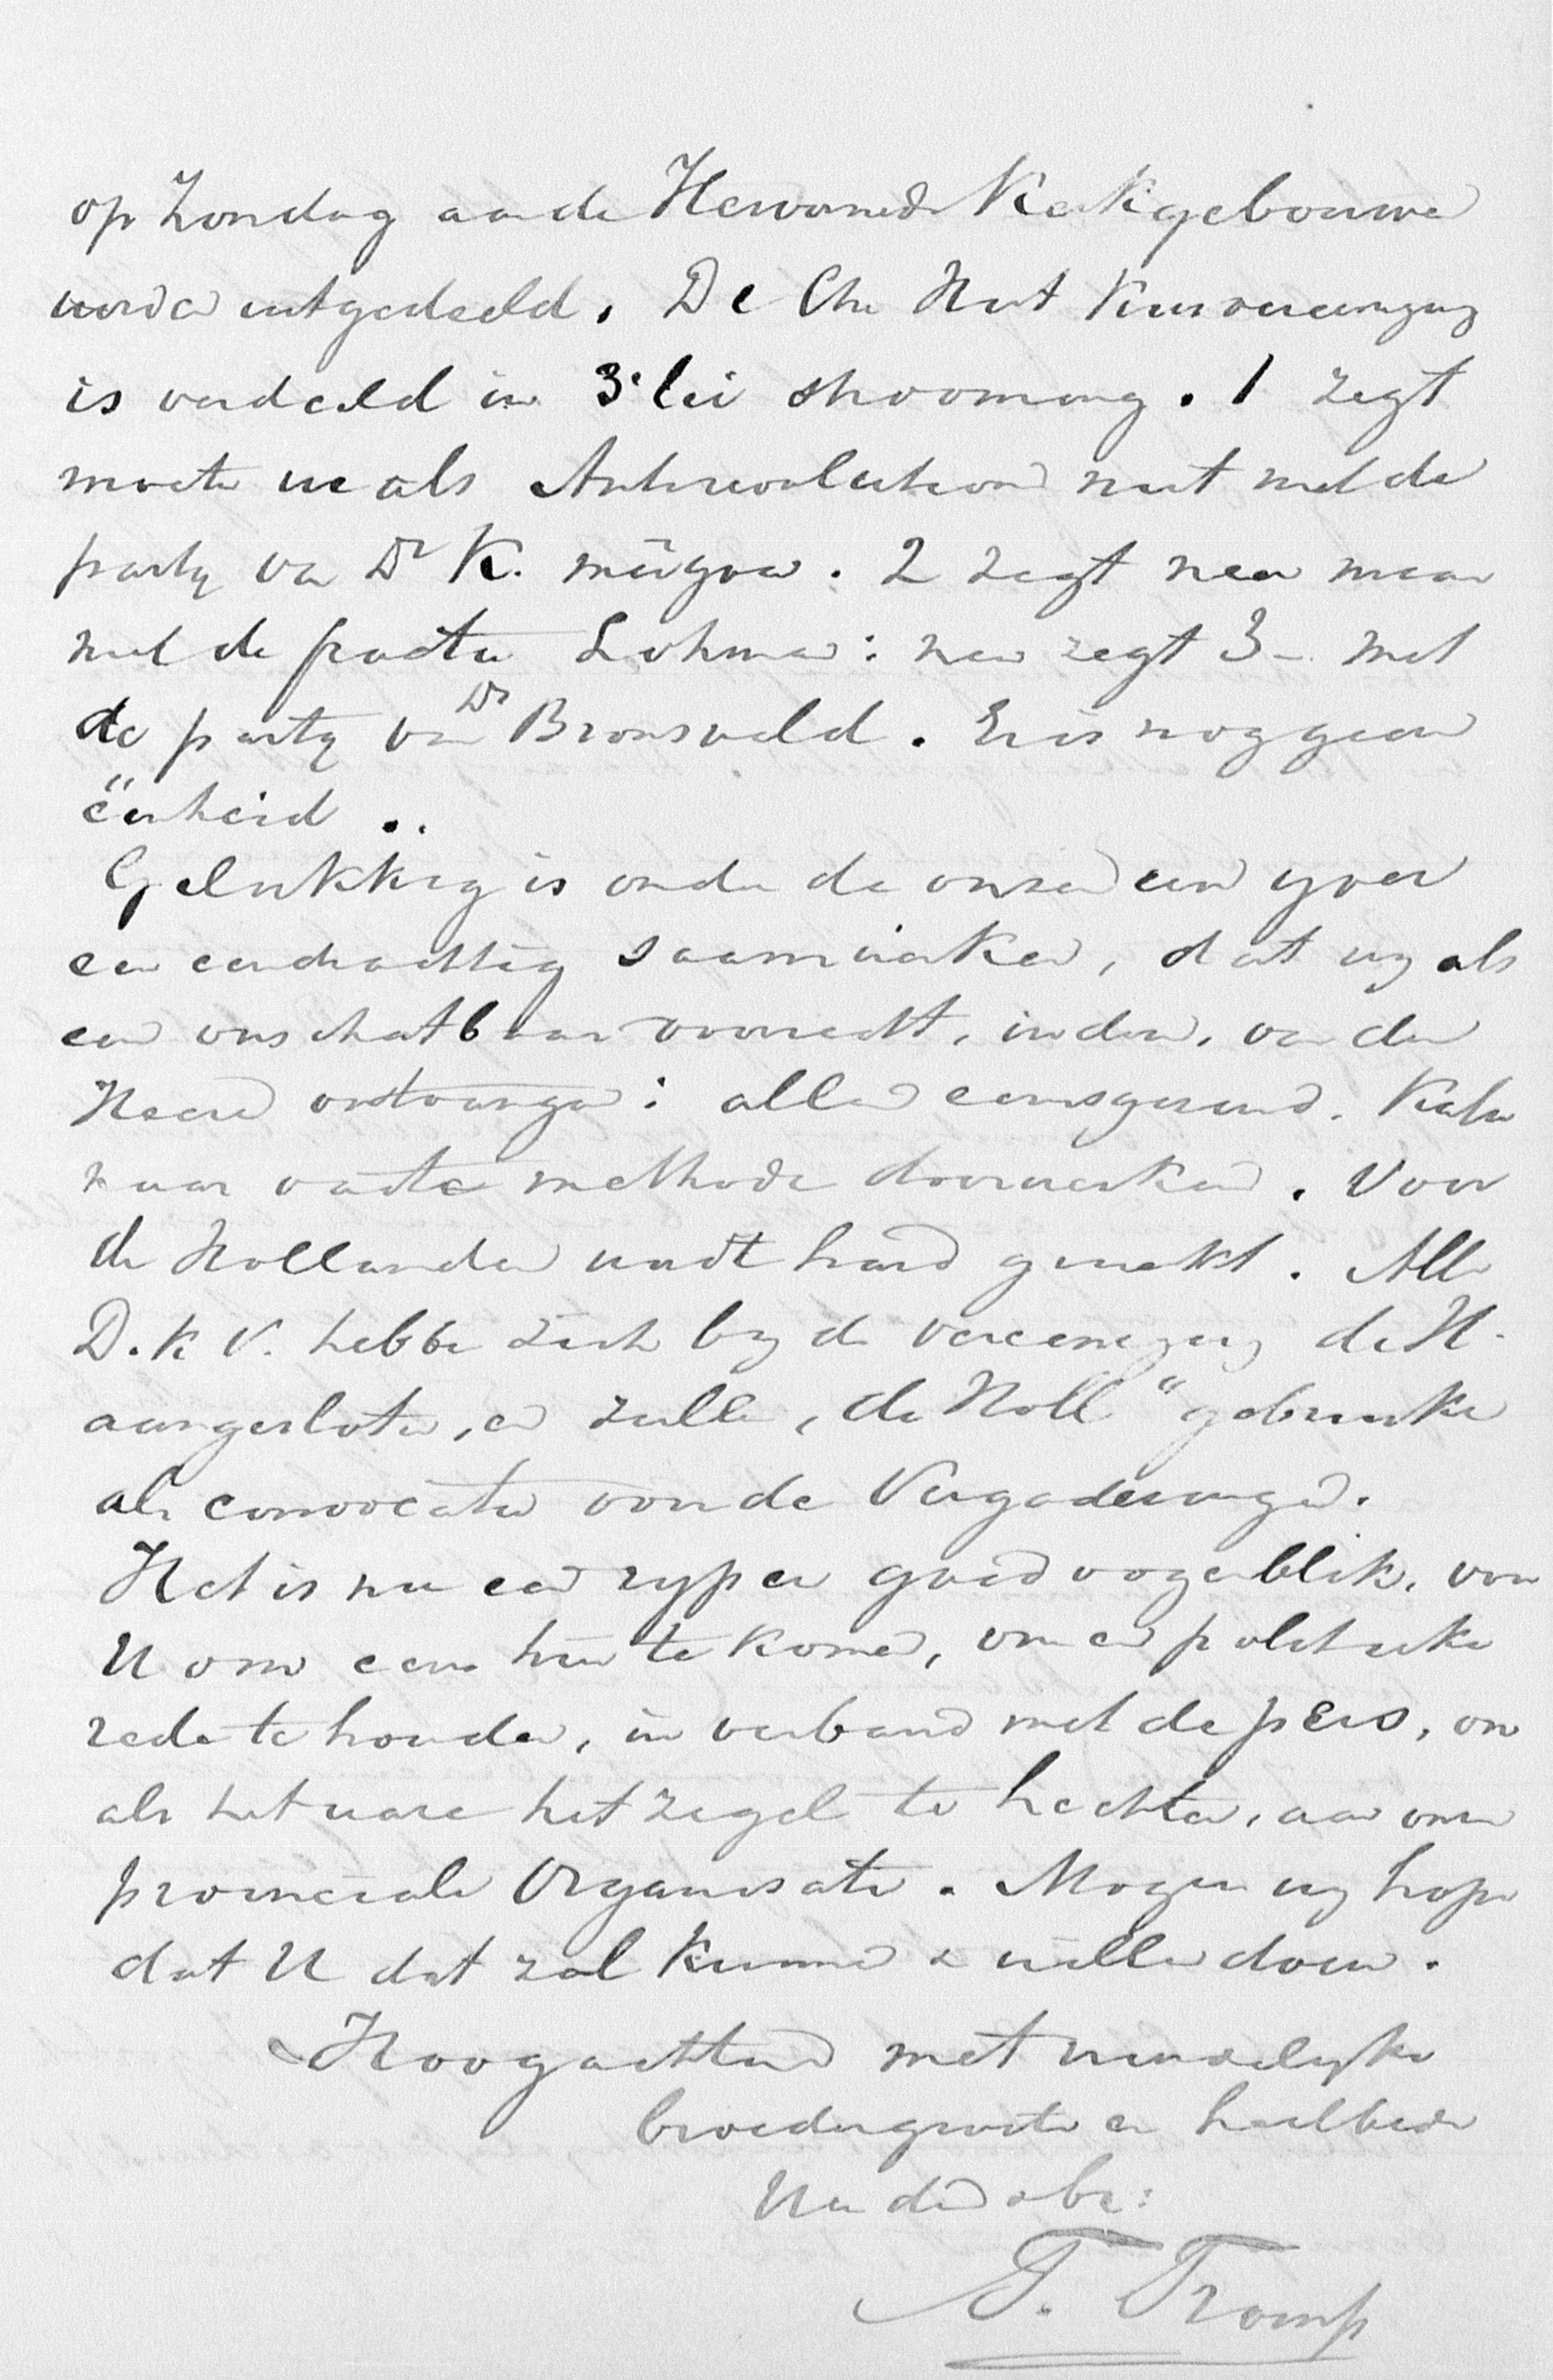 op Zondag aan de Hervormde Kerkgebouwen
worden uitgedeeld. De Chr Hist Kiesvereeniging
is verdeeld in 3'lei strooming. 1 zegt
moeten we als Antirevolution niet met de
party van Dr K. meêgaan. 2 zegt neen maar
met de fractie Lohman: neen zegt 3 - met
de party van Dr Bronsveld. Er is nog geen
ëenheid ..
Gelukkig is onder de onzen een yver
een eendrachtig saamwerken, dat wy als
een onschatbaar voorrecht, inden, van den
Heere ontvangen: allen eensgezind. Kalm
naar vaste methode doorwerken. Voor
de Hollander wordt hard gewerkt. Alle
D. K V. hebben zich by de vereeniging de H.
aangesloten, en zullen, de Holl" gebruiken
als convocatie voor de Vergaderingen.
Het is nu een ryp en goed oogenblik, voor
U om eens hier te komen, om een politieke
rede te houden, in verband met de pers, om
als het ware het zegel te hechten, aan onze
provinciale Organisatie. Mogen wy hopen
dat U dat zal kunnen & willen doen.
Hoogachtend met vriendelyke
broedergroeten en heilbede
Uw dd obr:
T. Tromp